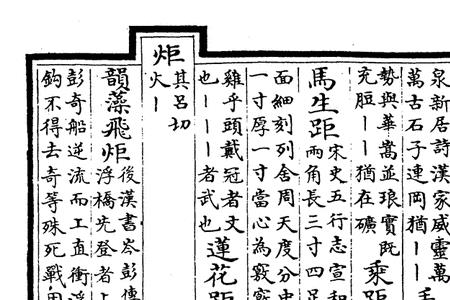 泉新居詩漢家威靈萬
萬古石子連岡猶丨丨
勢與華嵩並琅實既
充脰丨丨猶在礦
乘距
馬生距
宋史五行志宣和
兩角長三寸四足
面細刻列舍周天度分中
一寸厚一寸當心為竅竅
雞乎頭戴冠者文
也丨丨丨者武也
蓮花距
炬
其呂切
火丨
韻藻飛炬
後漢書岑彭傳
浮橋先登者上
彭奇船逆流而上直衝浮
鈎不得去奇等殊死戰因